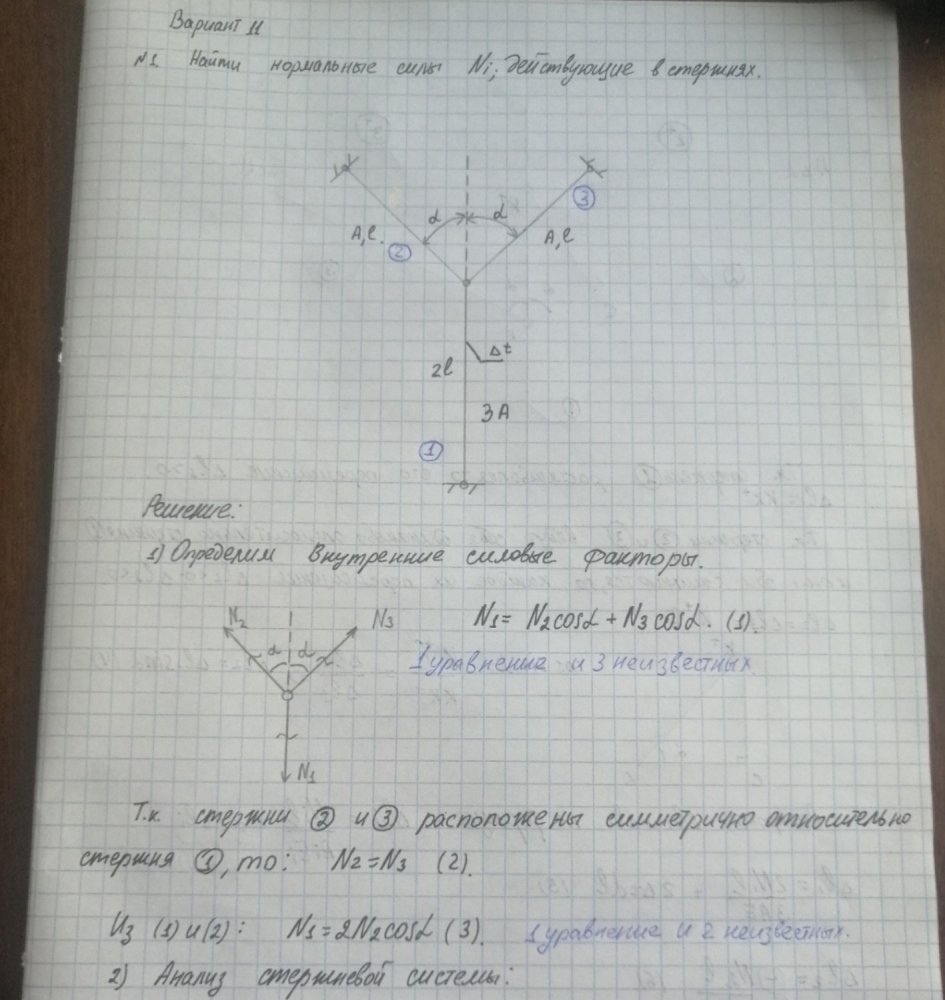 Вариант 11
№1. Найти нормальные силы Ni, действующие в стержнях.
3
α α
A, l. A, l
2
Δt
2l
3A
1
Решение:
1) Определим внутренние силовые факторы.
N2 N3
N1 = N2 cosα + N3 cosα. (1).
α α
1 уравнение и 3 неизвестных
N1
Т.к. стержни ② и ③ расположены симметрично относительно
стержня ①, то: N2 = N3 (2).
Из (1) и (2): N1 = 2N2 cosα (3). 1 уравнение и 2 неизвестных.
2) Анализ стержневой системы: